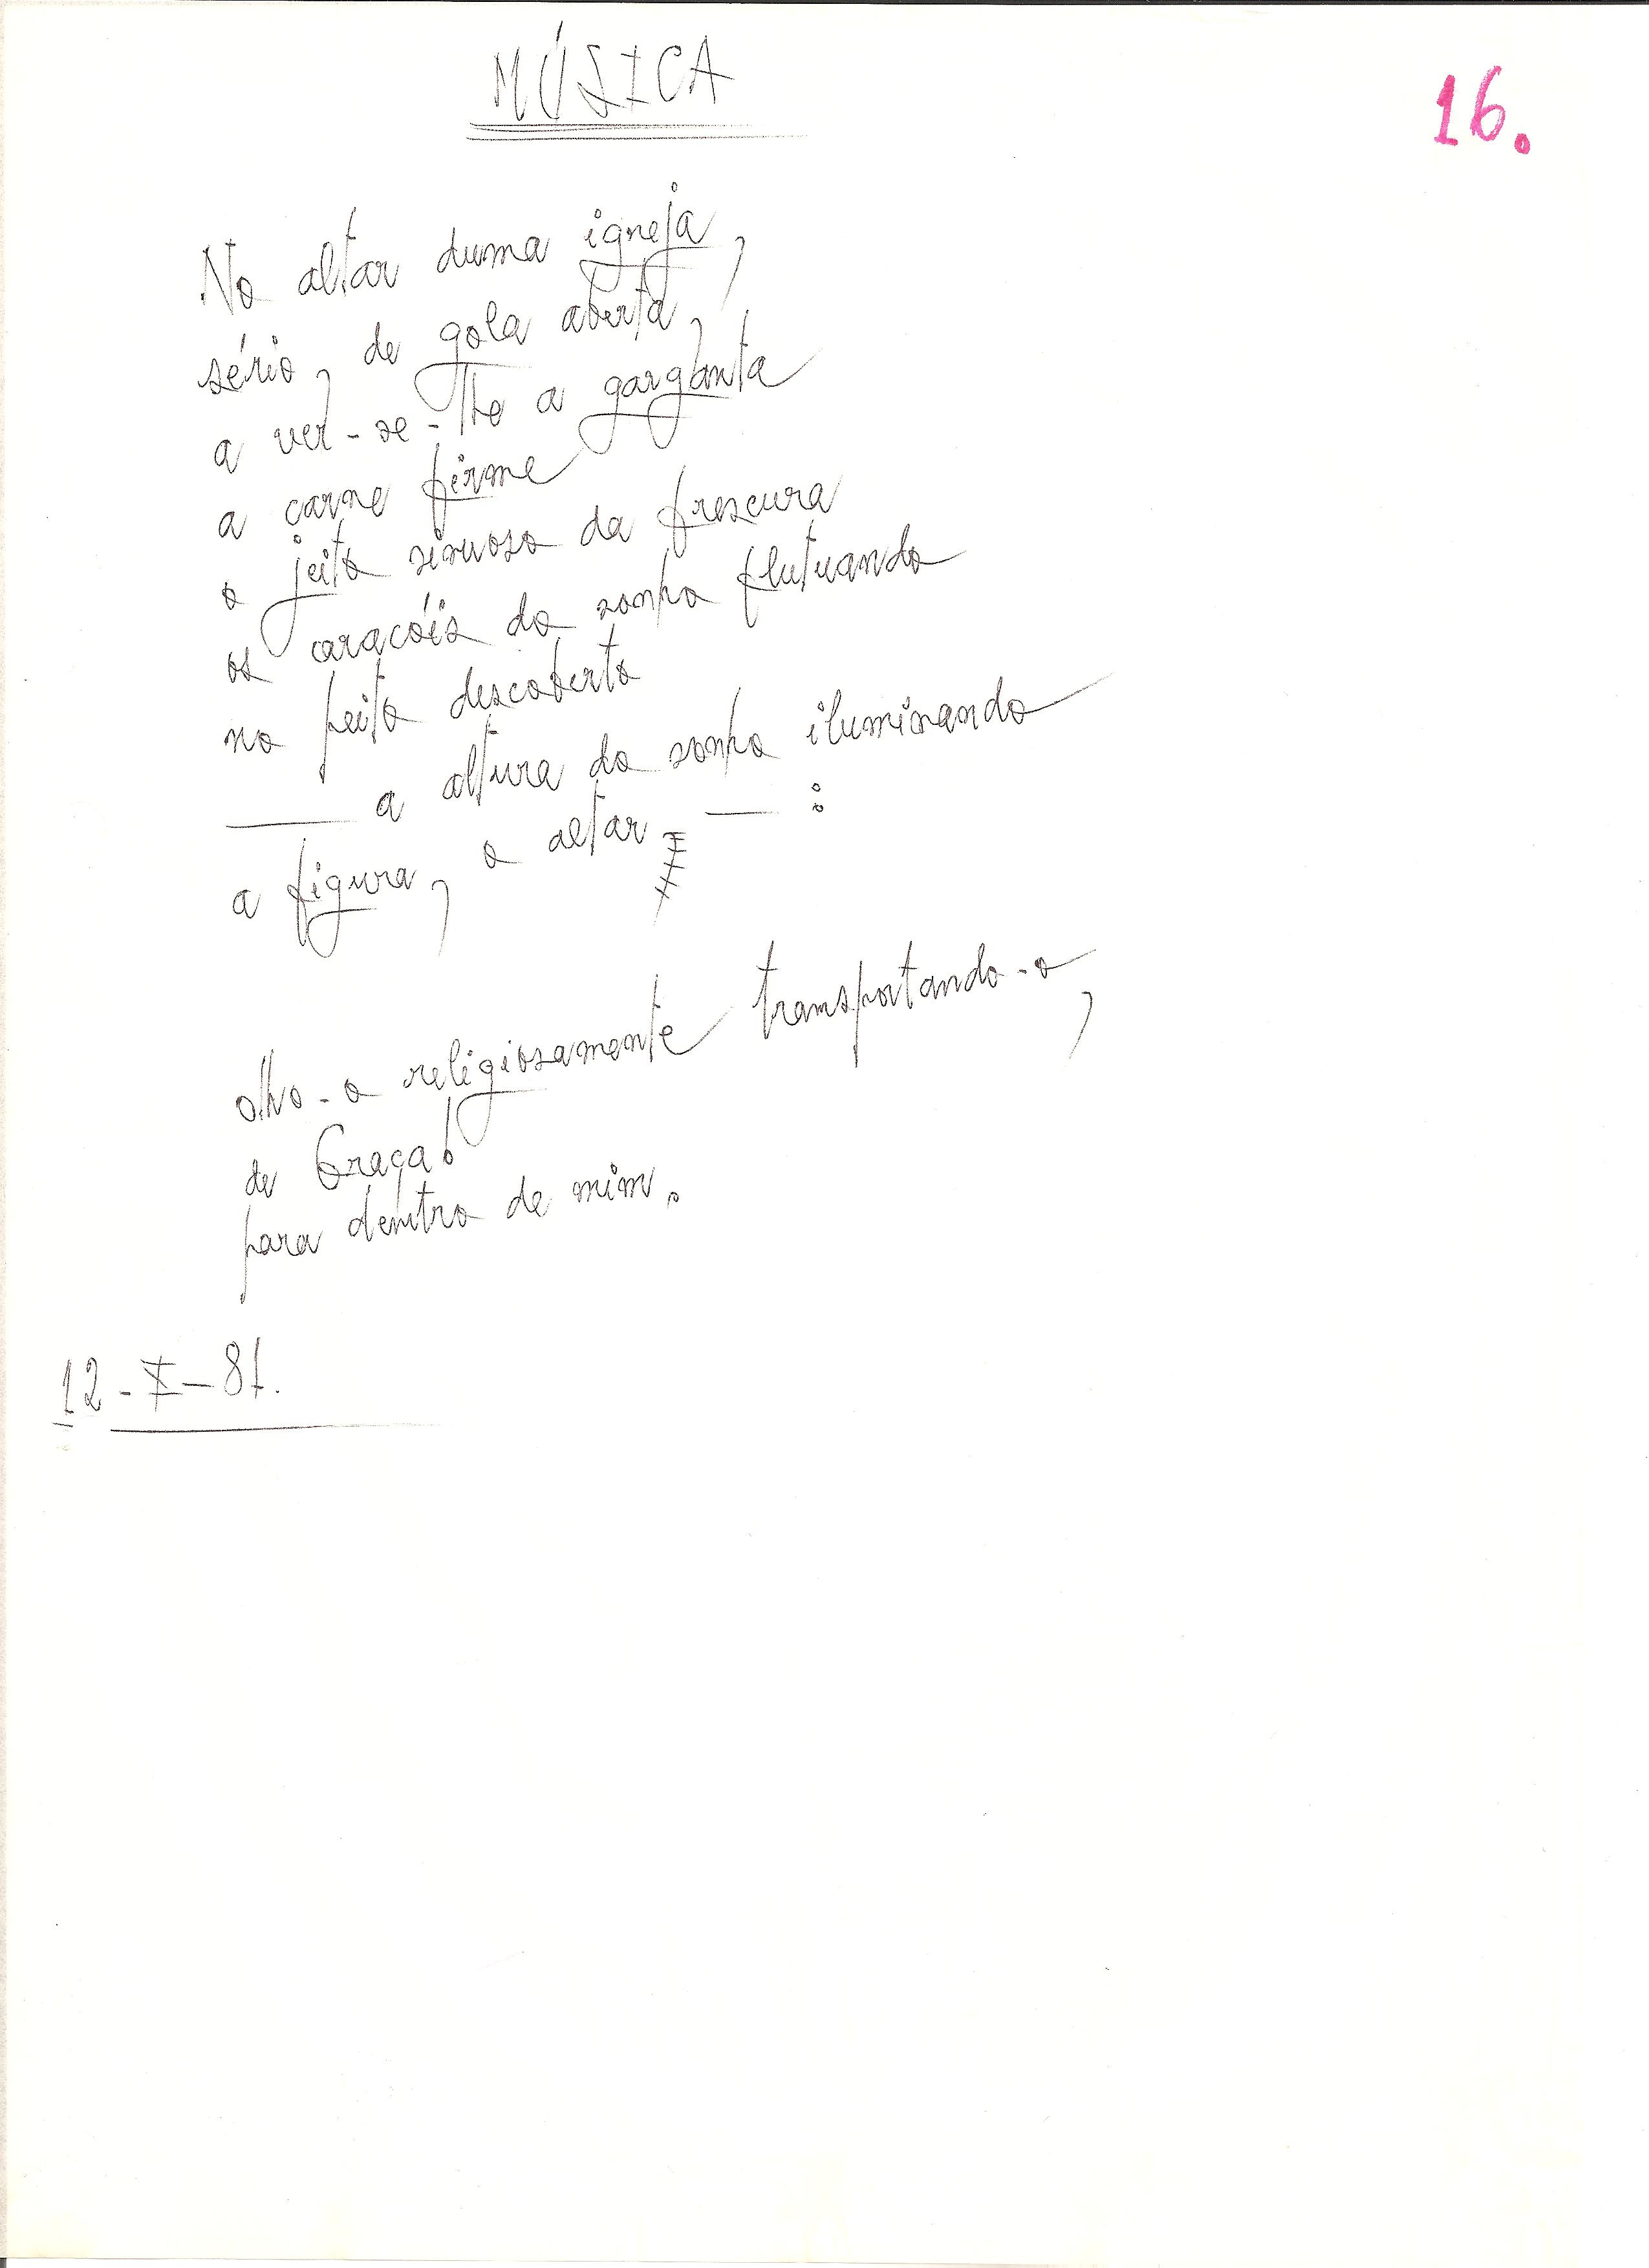 MÚSICA
16.
No altar duma igreja,
sério, de gola aberta,
a ver-se-lhe a garganta
a carne firme
o jeito sinuoso da frescura
os caracóis do sonho flutuando
no peito descoberto
— a altura do sonho iluminando
a figura, o altar — :
olho-o religiosamente transportando-o,
de Graça!
para dentro de mim.
12-X-81.